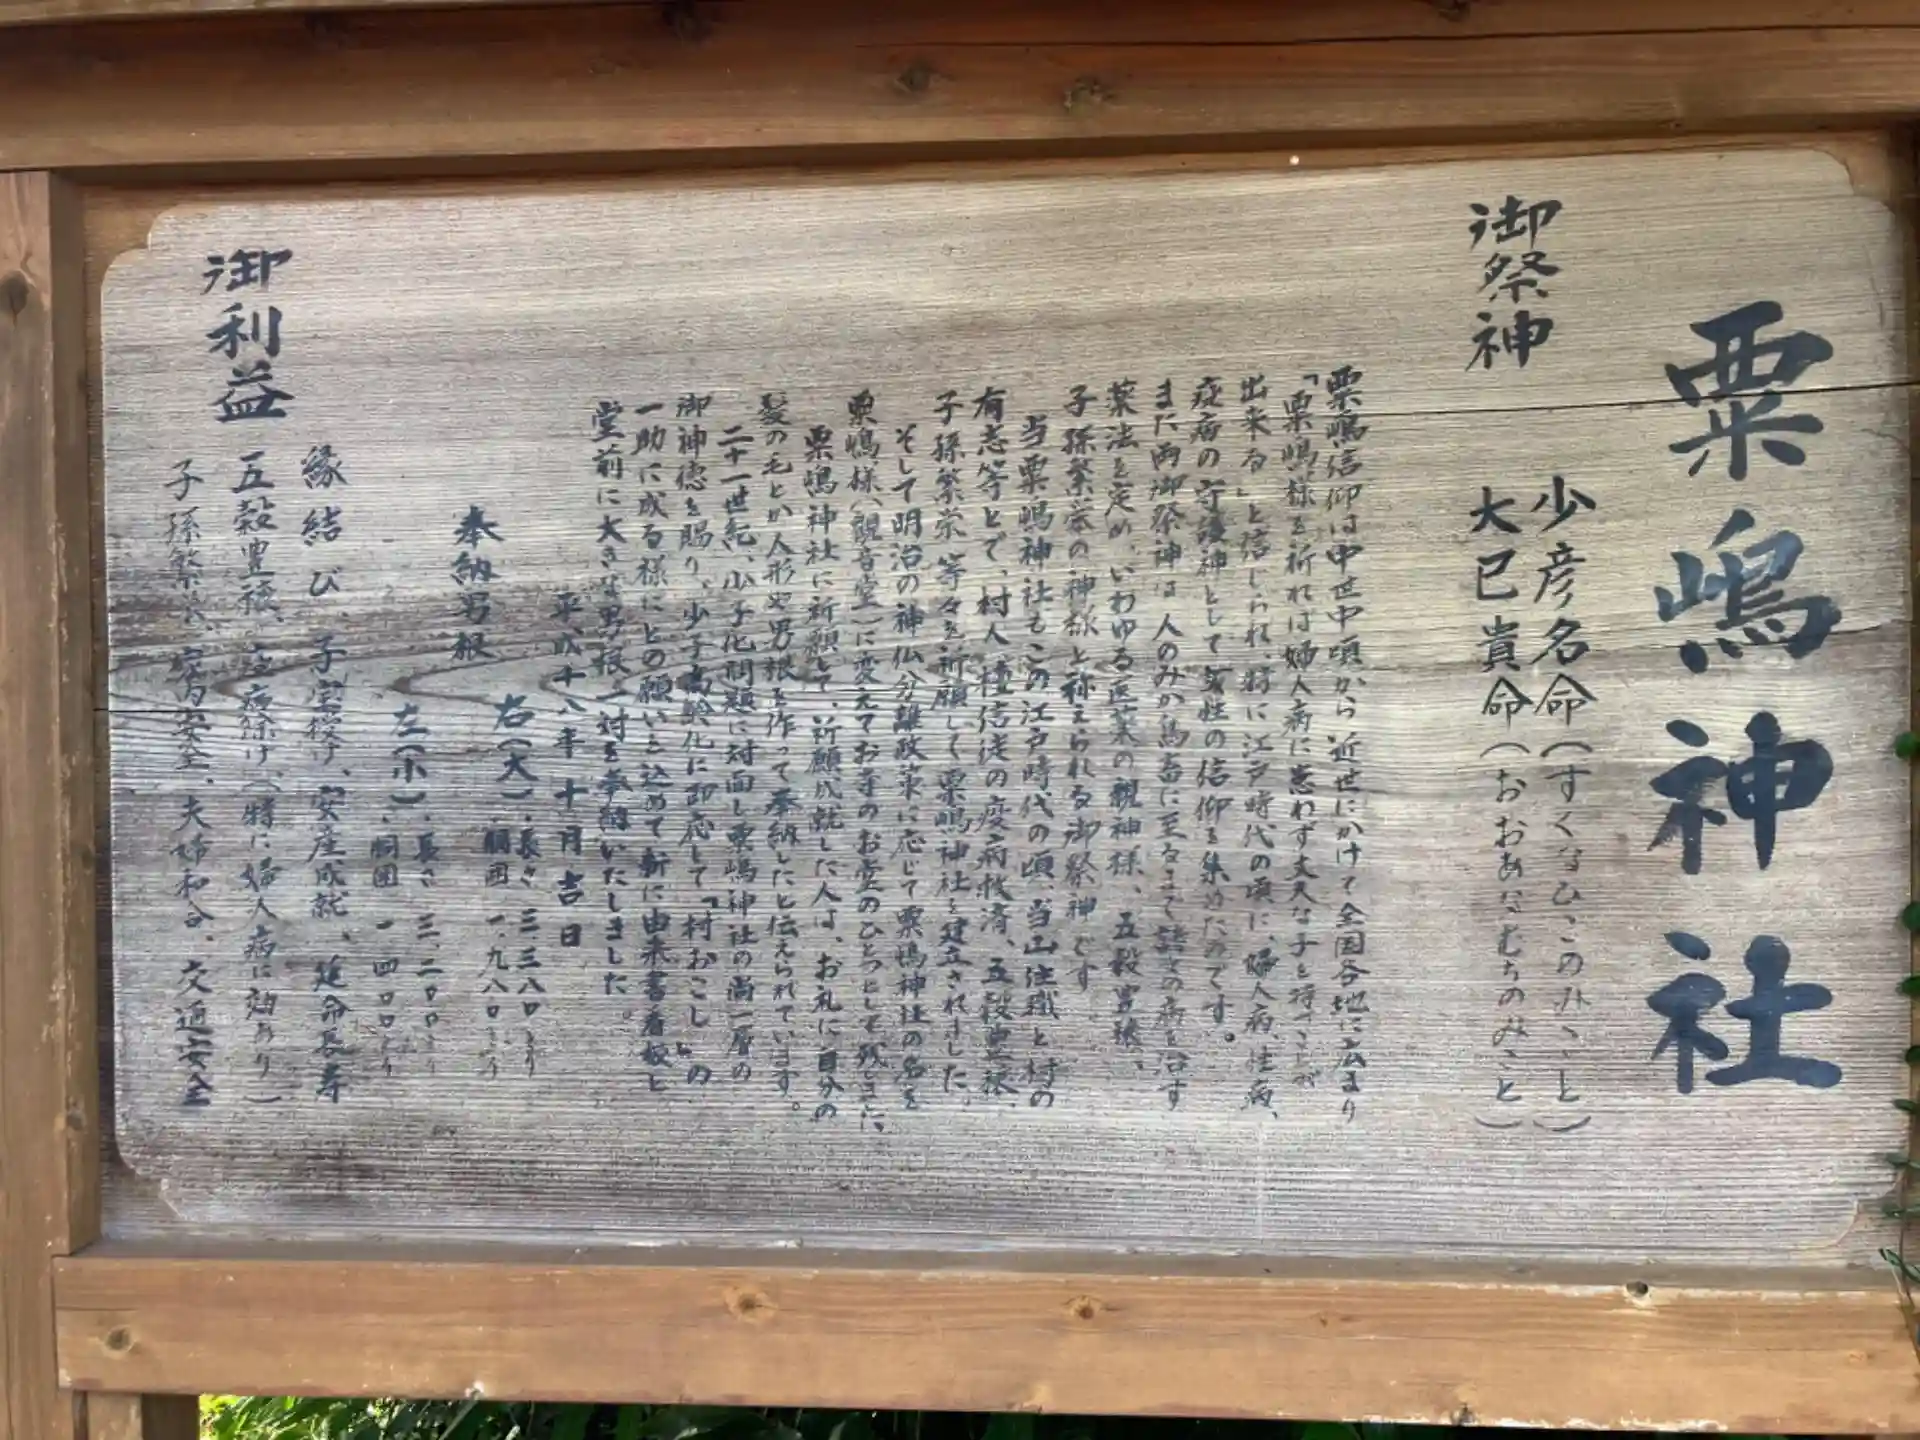 粟嶋神社
御祭神
少彦名命(すくなひこのみこと)
大已貴命(おおあなむちのみこと)
粟嶋信仰は中世中頃から近世にかけて全国各地に広まり
「粟嶋様を祈れば婦人病に患わず丈夫な子を持つことが
出来る」と信じられ、特に江戸時代の頃に、婦人病、性病、
疫病の守護神として女性の信仰を集めたのです。
また両御祭神は人のみか鳥畜に至るまで諸々の病を治す
薬法を定め、いわゆる医薬の親神様、五穀豊穣、
子孫繁栄の神様と称えられる御祭神です
当粟嶋神社もこの江戸時代の頃、当山住職と村の
有志等とで、村人、檀信徒の疫病救済、五穀豊穣、
子孫繁栄、等々を祈願して粟嶋神社を建立されました。
そして明治の神仏分離政策に応じて粟嶋神社の名を
粟嶋様、(観音堂)に変えてお寺のお堂のひとつとして残されました、
粟嶋神社に祈願して、祈願成就した人は、お礼に自分の
髪の毛とか人形や男根を作って奉納したと伝えられています。
二十一世紀、少子化問題に対面し粟嶋神社の尚一層の
御神徳を賜り、少子高齢化に即応して「村おこし」の
一助に成る様にとの願いを込めて新に由来書看板と
堂前に大きな男根一対を奉納いたしました。
平成十八年十月吉日
奉納男根
右(大)、長さ 三、三八〇ミリ
胴囲 一、九八〇ミリ
左(小)、長さ 三、二〇〇ミリ
胴囲 一、四〇〇ミリ
御利益
縁結び、子宝授け、安産成就、延命長寿
五穀豊穣、病除け、(特に婦人病に効あり)
子孫繁栄、家内安全、夫婦和合、交通安全